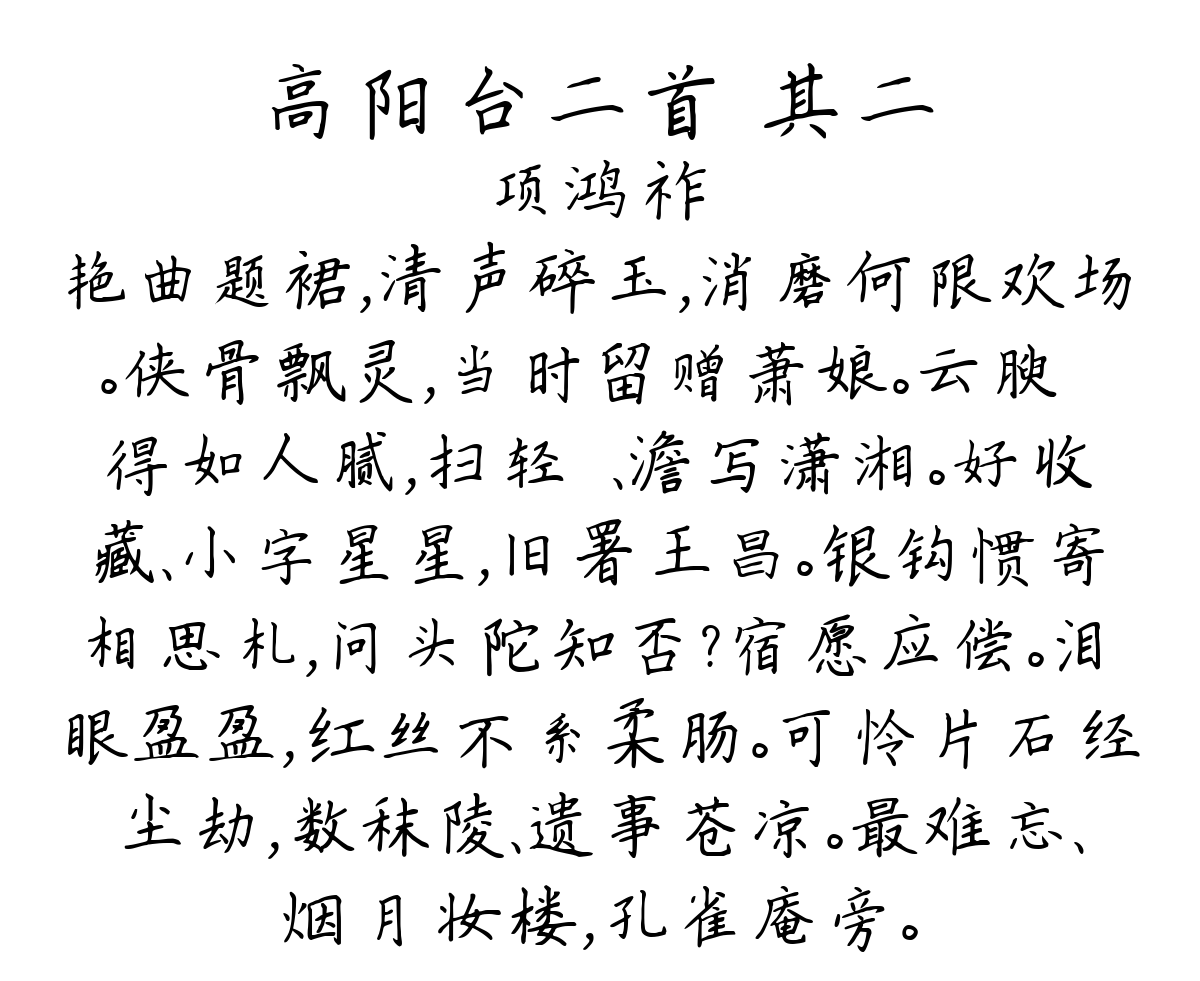 高阳台二首 其二
项鸿祚
艳曲题裙,清声碎玉,消磨何限欢场
。侠骨飘灵,当时留赠萧娘。云腴
得如人腻,扫轻 、澹写潇湘。好收
藏、小字星星,旧署王昌。银钩惯寄
相思札,问头陀知否?宿愿应偿。泪
眼盈盈,红丝不系柔肠。可怜片石经
尘劫,数秣陵、遗事苍凉。最难忘、
烟月妆楼,孔雀庵旁。